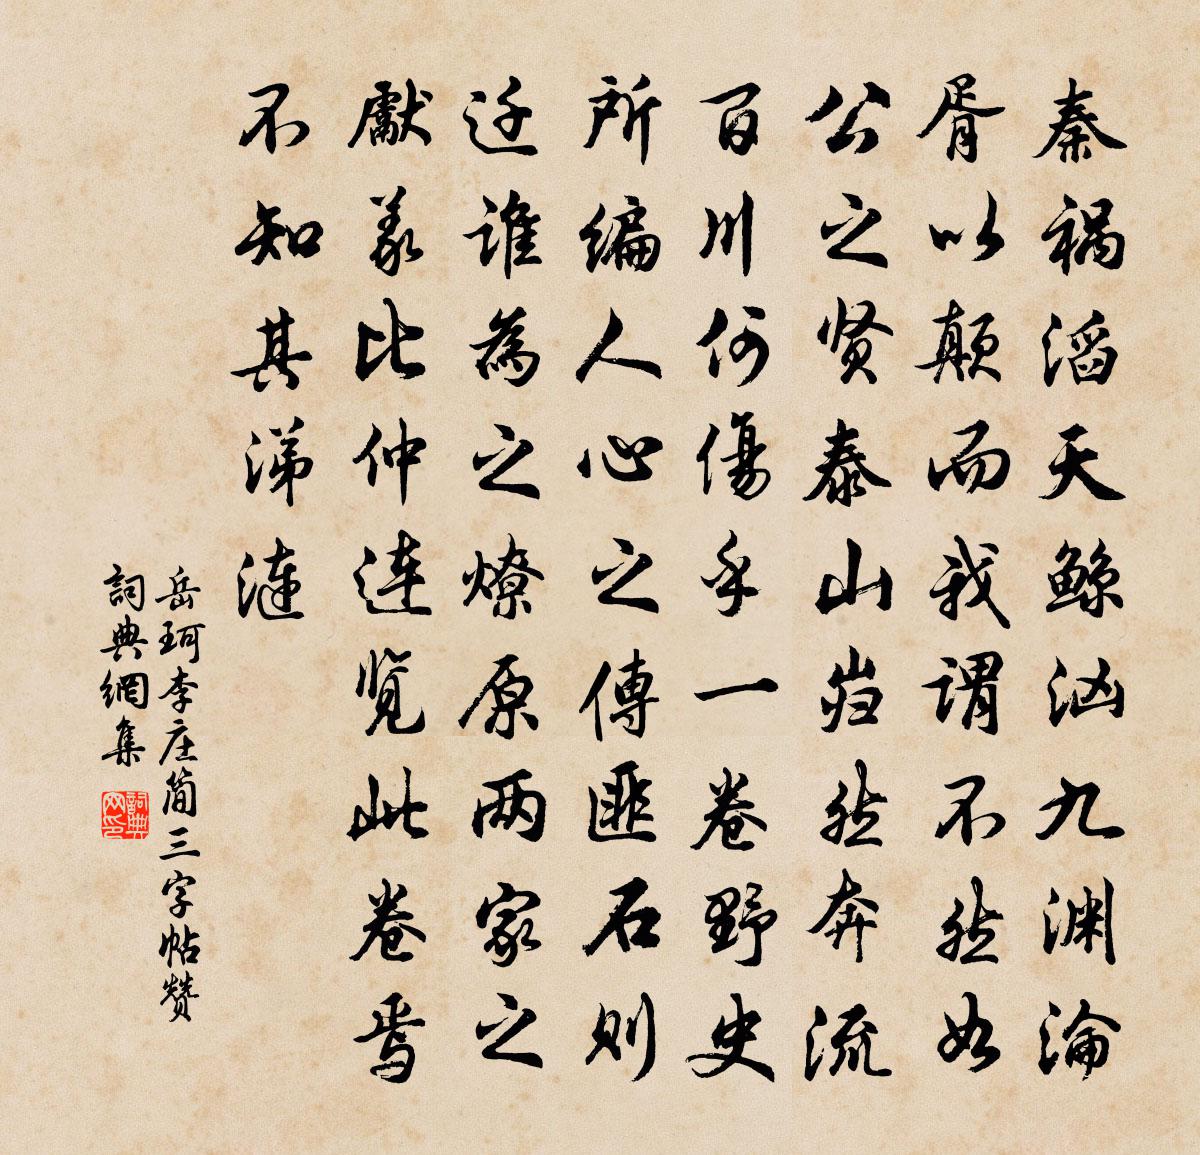 秦祸滔天鲸汹九渊淪
胥以颠而我谓不然如
公之贤泰山岿然奔流
百川何傷乎一卷野史
所编人心之傳匪石则
迁谁為之燎原两家之
獻義比仲连览此卷焉
不知其涕涟
岳珂李庄简三字帖赞
詞典網集
詞典网印